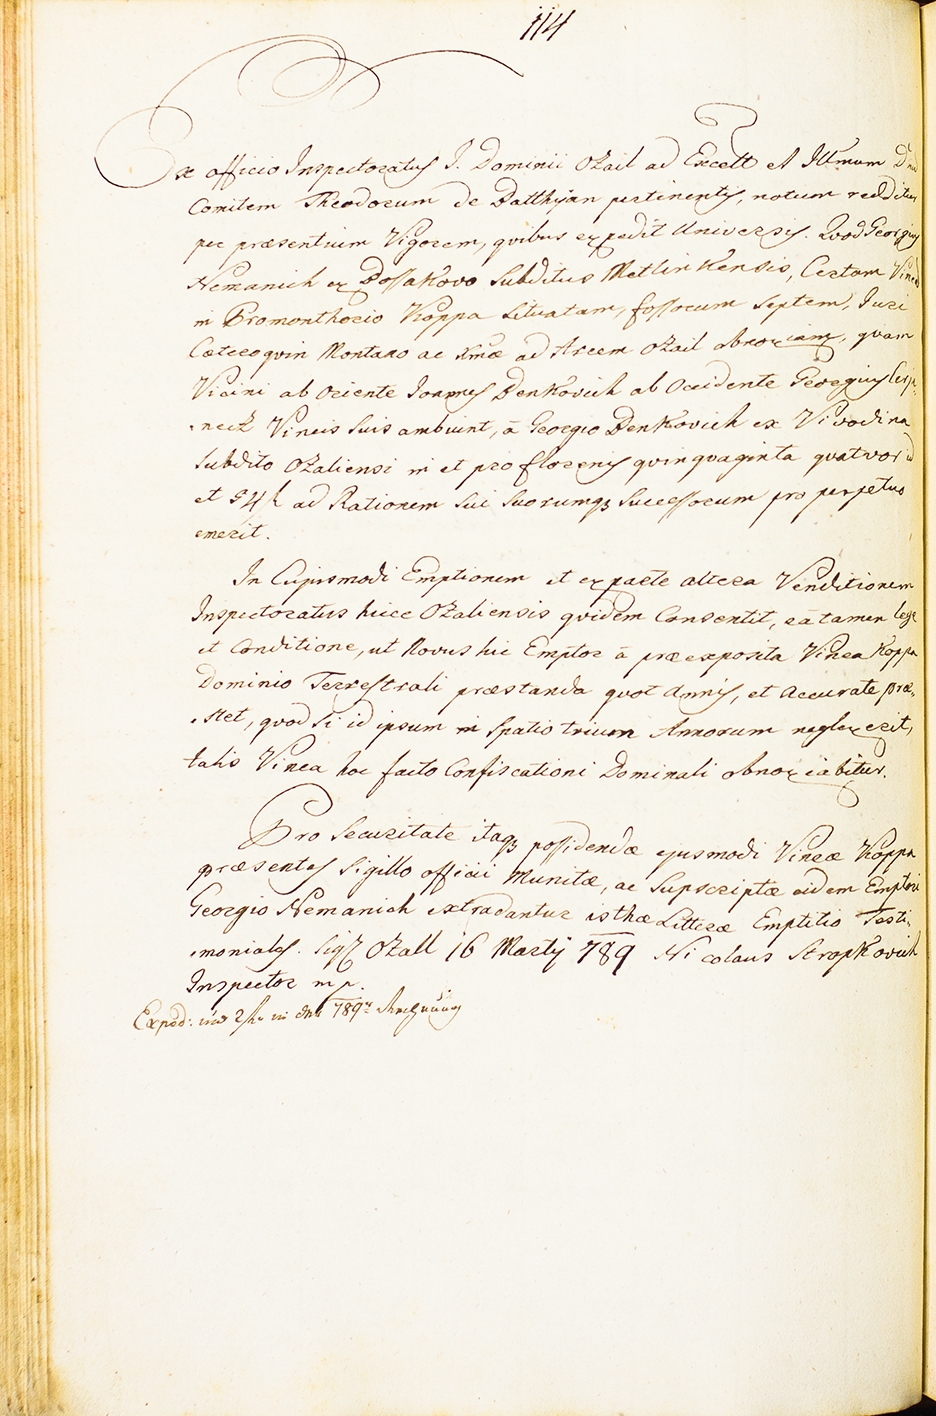 114
Ex officio Inspectoratus I. Dominii Ozail ad Excell et Illmum Dnu
Comitem Theodorum de Batthyan pertinentis, notum redditur
per præsentium Vigorem, quibus expedit Universis. Quod Georgius
Nemanich ex Bossakovo Subditus Metlinkensis, Certam Vineam
in Promonthorio Koppa Situatam, fossorum Septem, Juri
Cæteroquin Montano ac xmæ ad Arcem Ozail abnoxiam, quam
Vicini ab Oriente Joannes Benkovich ab Occidente Georgius
Vineis Suis ambiunt, ā Georgio Benkovich ex Vivodina
Subdito Ozaliensi in et pro florenis quinquaginta quatuor id
et 54 f ad Rationem Sui Suorumq3 Successorum pro perpetuo
emerit.
In Cujusmodi Emptionem et ex parte altera Venditionem
Inspectoratus hicce Ozaliensis quidem Consentit, eā tamen lege
et Conditione, ut Novus hic Emptor ā præexposita Vinea Koppa
Dominio Terrestrali præstanda quot Annis, et Accurate præ,,
,,stet, quod Si id ipsum in Spatio trium Annorum neglexerit,
talis Vinea hoc facto Confiscationi Dominali abnoxiabitur.
Pro Securitate itaq3 possidendæ ejusmodi Vineæ Koppa
præsentes Sigillo officii Munitæ, ac Supscriptæ eidem Emptori
Georgio Nemanich extradantur isthæ Litteræ Emptitio Testi,,
,,moniales. Sigl Ozall 16 Martij 789 Nicolaus Stropkovich
Inspector mp.
Exped: 789